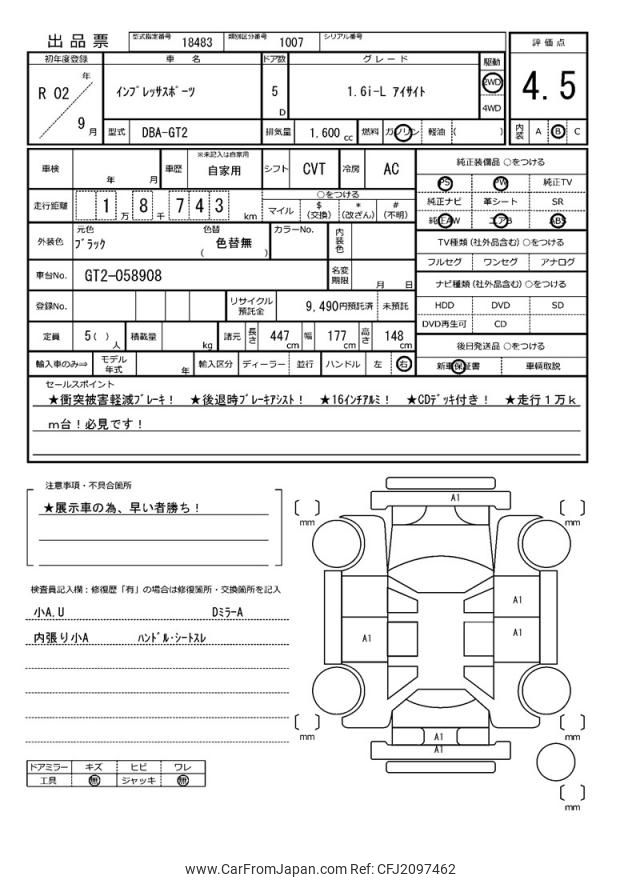 出品票 型式指定番号 18483 類別区分番号 1007 シリアル番号
評価点
4.5
内装 A B C
初年度登録 車名 ドア数 グレード 駆動
R 02 年 9 月
インプレッサスポーツ 5 D 1.6i-L アイサイト 2WD
4WD
型式 DBA-GT2 排気量 1,600 cc 燃料 ガソリン 軽油 ( )
車検 年 月 車歴 ※未記入は自家用 自家用 シフト CVT 冷房 AC
走行距離 1 万 8 千 7 4 3 km
○をつける
マイル $ (交換) * (改ざん) # (不明)
外装色 元色 ブラック 色替 色替無 ( ) カラーNo. 内装色
車台No. GT2-058908 名変期限 月 日
登録No. リサイクル預託金 9,490円預託済 未預託
定員 5( ) 人 積載量 kg 諸元 長さ 447 cm 幅 177 cm 高さ 148 cm
輸入車のみ⇒ モデル年式 年 輸入区分 ディーラー 並行 ハンドル 左 右
純正装備品 ○をつける
PS PW 純正TV
純正ナビ 革シート SR
純正AW エアB ABS
TV種類(社外品含む)○をつける
フルセグ ワンセグ アナログ
ナビ種類(社外品含む)○をつける
HDD DVD SD
DVD再生可 CD
後日発送品 ○をつける
新車保証書 車輌取説
セールスポイント
★衝突被害軽減ブレーキ! ★後退時ブレーキアシスト! ★16インチアルミ! ★CDデッキ付き! ★走行1万k
m台!必見です!
注意事項・不具合箇所
★展示車の為、早い者勝ち!
検査員記入欄:修復歴「有」の場合は修復箇所・交換箇所を記入
小A.U DミラーA
内張り小A ハンドル・シートスレ
ドアミラー キズ ヒビ ワレ
工具 無 ジャッキ 無
A1
mm
mm
A1
A1
A1
mm
mm
A1
A1
mm
www.CarFromJapan.com Ref: CFJ2097462